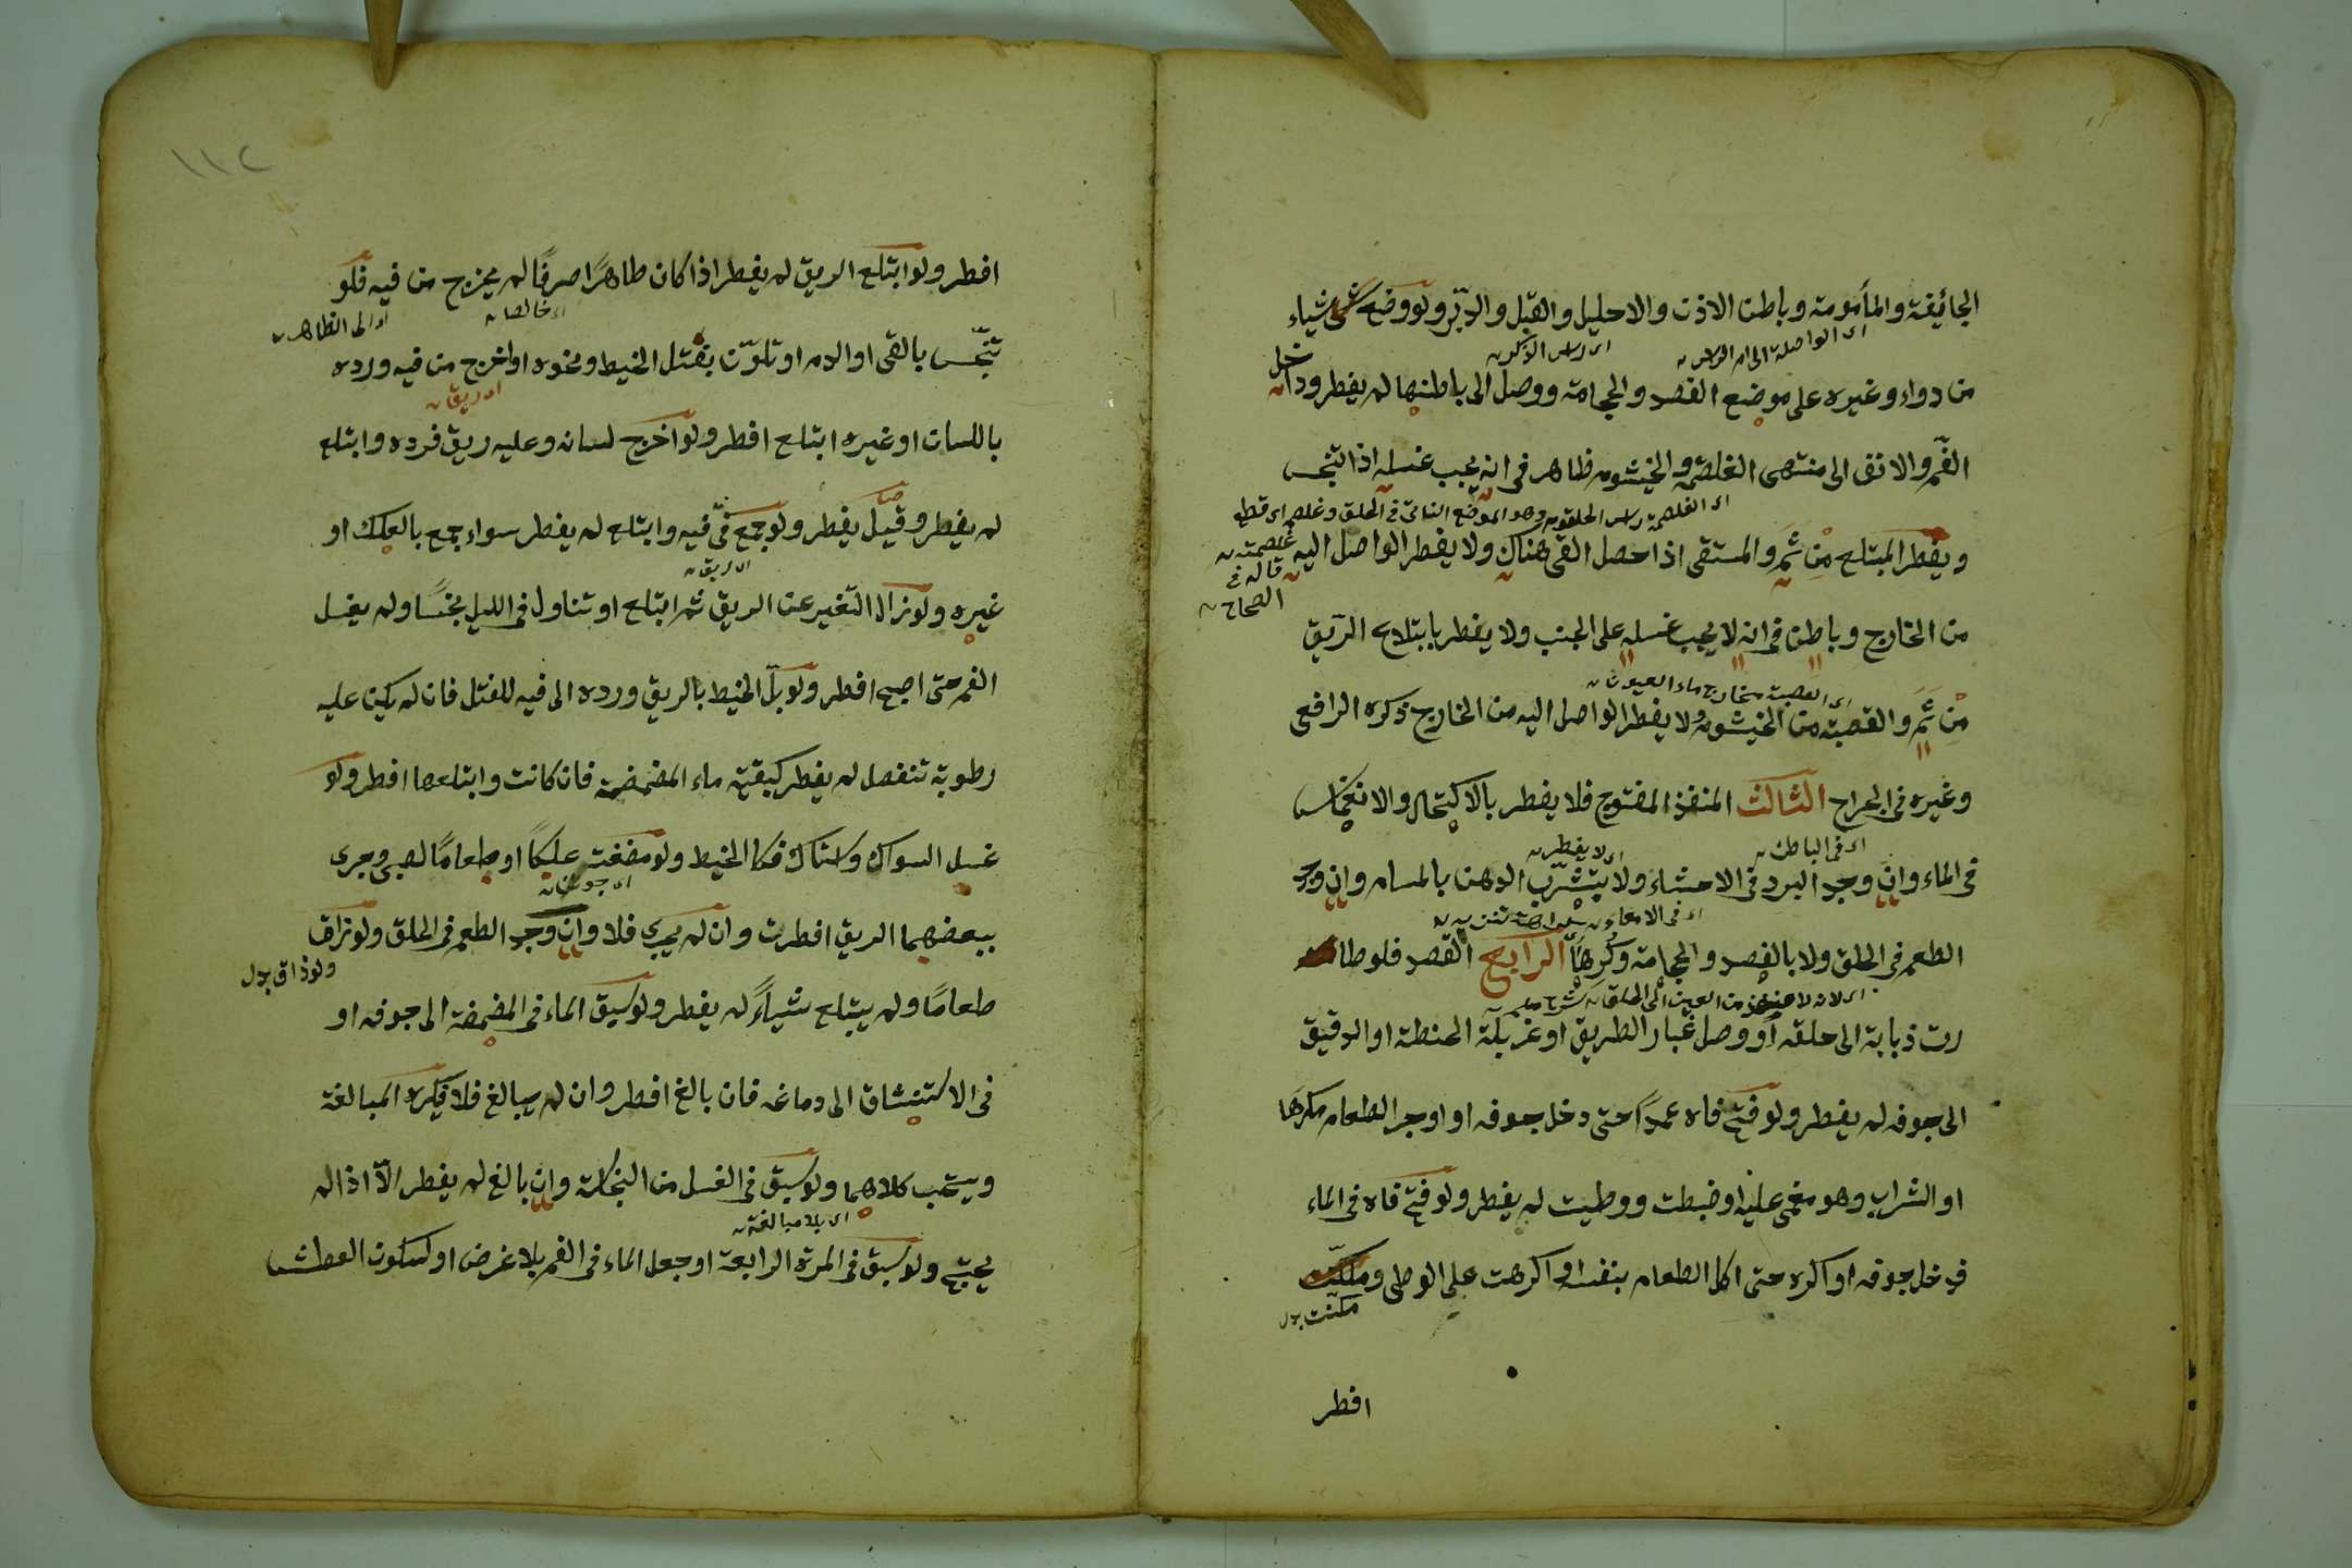 الجائيفة والمأمومة وباطن الاذن والاحليل والقبل والدبر ولو وضع شياء
اى الواصلة الى ام الراس
اى راس الذكر
من دواء وغيره على موضع الفصد والحجامة ووصل الى باطنها لم يفطر وداخل
الفم والانف الى منتهى الغلصمة والخيشوم ظاهر فى انه يجب غسله اذا تنجس
اى الغلصمة راس الحلقوم وهو الموضع الناتئ فى الحلق وغلصم اى قطع
غلصمته
قاله فى
الصحاح
ويفطر المبتلع مِن ثَمَّ والمستقى اذا حصل القى هناك ولا يفطر الواصل اليه
من الخارج وباطن فى انه لا يجب غسله على الجنب ولا يفطر بابتلاع الريق
اى القصبة مخارج ماء العيون
مِن ثَمَّ والقصبة من الخيشوم ولا يفطر الواصل اليه من الخارج ذكره الرافعى
وغيره فى الجراح الثالث المنفذ المفتوح فلا يفطر بالاكتحال والانغماس
اى فى الباطن
اى لا يفطر
فى الماء وان وجد البرد فى الاحشاء ولا بتشرّب الدهن بالمسام وان وجد
اى فى الامعاء
كراهة تنزيه
الطعم فى الحلق ولا بالفصد والحجامة وكرها الرابع القصد فلو طا
اى لانه لا منفذ من العين الى الحلق شرح
رت ذبابة الى حلقه أو وصل غبار الطريق او غربلة الحنطة او الدقيق
الى جوفه لم يفطر ولو فتح فاه عمداً حتى دخل جوفه او اوجر الطعام مكرهًا
او الشراب وهو مغمى عليه او ضبطت ووطيت لم يفطر ولو فتح فاه فى الماء
فدخل جوفه او اكره حتى اكل الطعام بنفسه او اكرهت على الوطى ومكنت
مكنت بدل
افطر
١١٢
افطر ولو ابتلع الريق لم يفطر اذا كان طاهرًا صرفًا لم يخرج من فيه فلو
اى خالصا
اى الى الظاهر
تنجّس بالقى او الدم او تلوّن بفتل الخيط ونحوه او اخرج من فيه ورده
اى ريق
باللسان او غيره ابتلع افطر ولو اخرج لسانه وعليه ريق فرده وابتلع
لم يفطر وقيل يفطر ولو جمع فى فيه وابتلع لم يفطر سواء جمع بالعلك او
اى ريق
غيره ولو زال التغير عن الريق ثم ابتلع او تناول فى الليل نجسًا ولم يغسل
الفم حتى اصبح افطر ولو بلّ الخيط بالريق ورده الى فيه للفتل فان لم يكن عليه
رطوبة تنفصل لم يفطر كبقية ماء المضمضة فان كانت وابتلعها افطر ولو
غسل السواك واستاك فكا الخيط ولو مضغت علكًا او طعامًا لصبى وجرى
ببعضهما الريق افطرت وان لم يجرى فلا وان وجد الطعم فى الحلق ولو زاق
ولو ذاق بدل
طعامًا ولم يبتلع شياءً لم يفطر ولو سبق الماء فى المضمضة الى جوفه او
فى الاستنشاق الى دماغه فان بالغ افطر وان لم يبالغ فلا فيكره المبالغة
ويستحب كلاهما ولو سبق فى الغسل من النجاسة وان بالغ لم يفطر الّا اذا لم
اى بلا مبالغة
يحتج ولو سبق فى المرة الرابعة او جعل الماء فى الفم بلا غرض او لسكون العطش